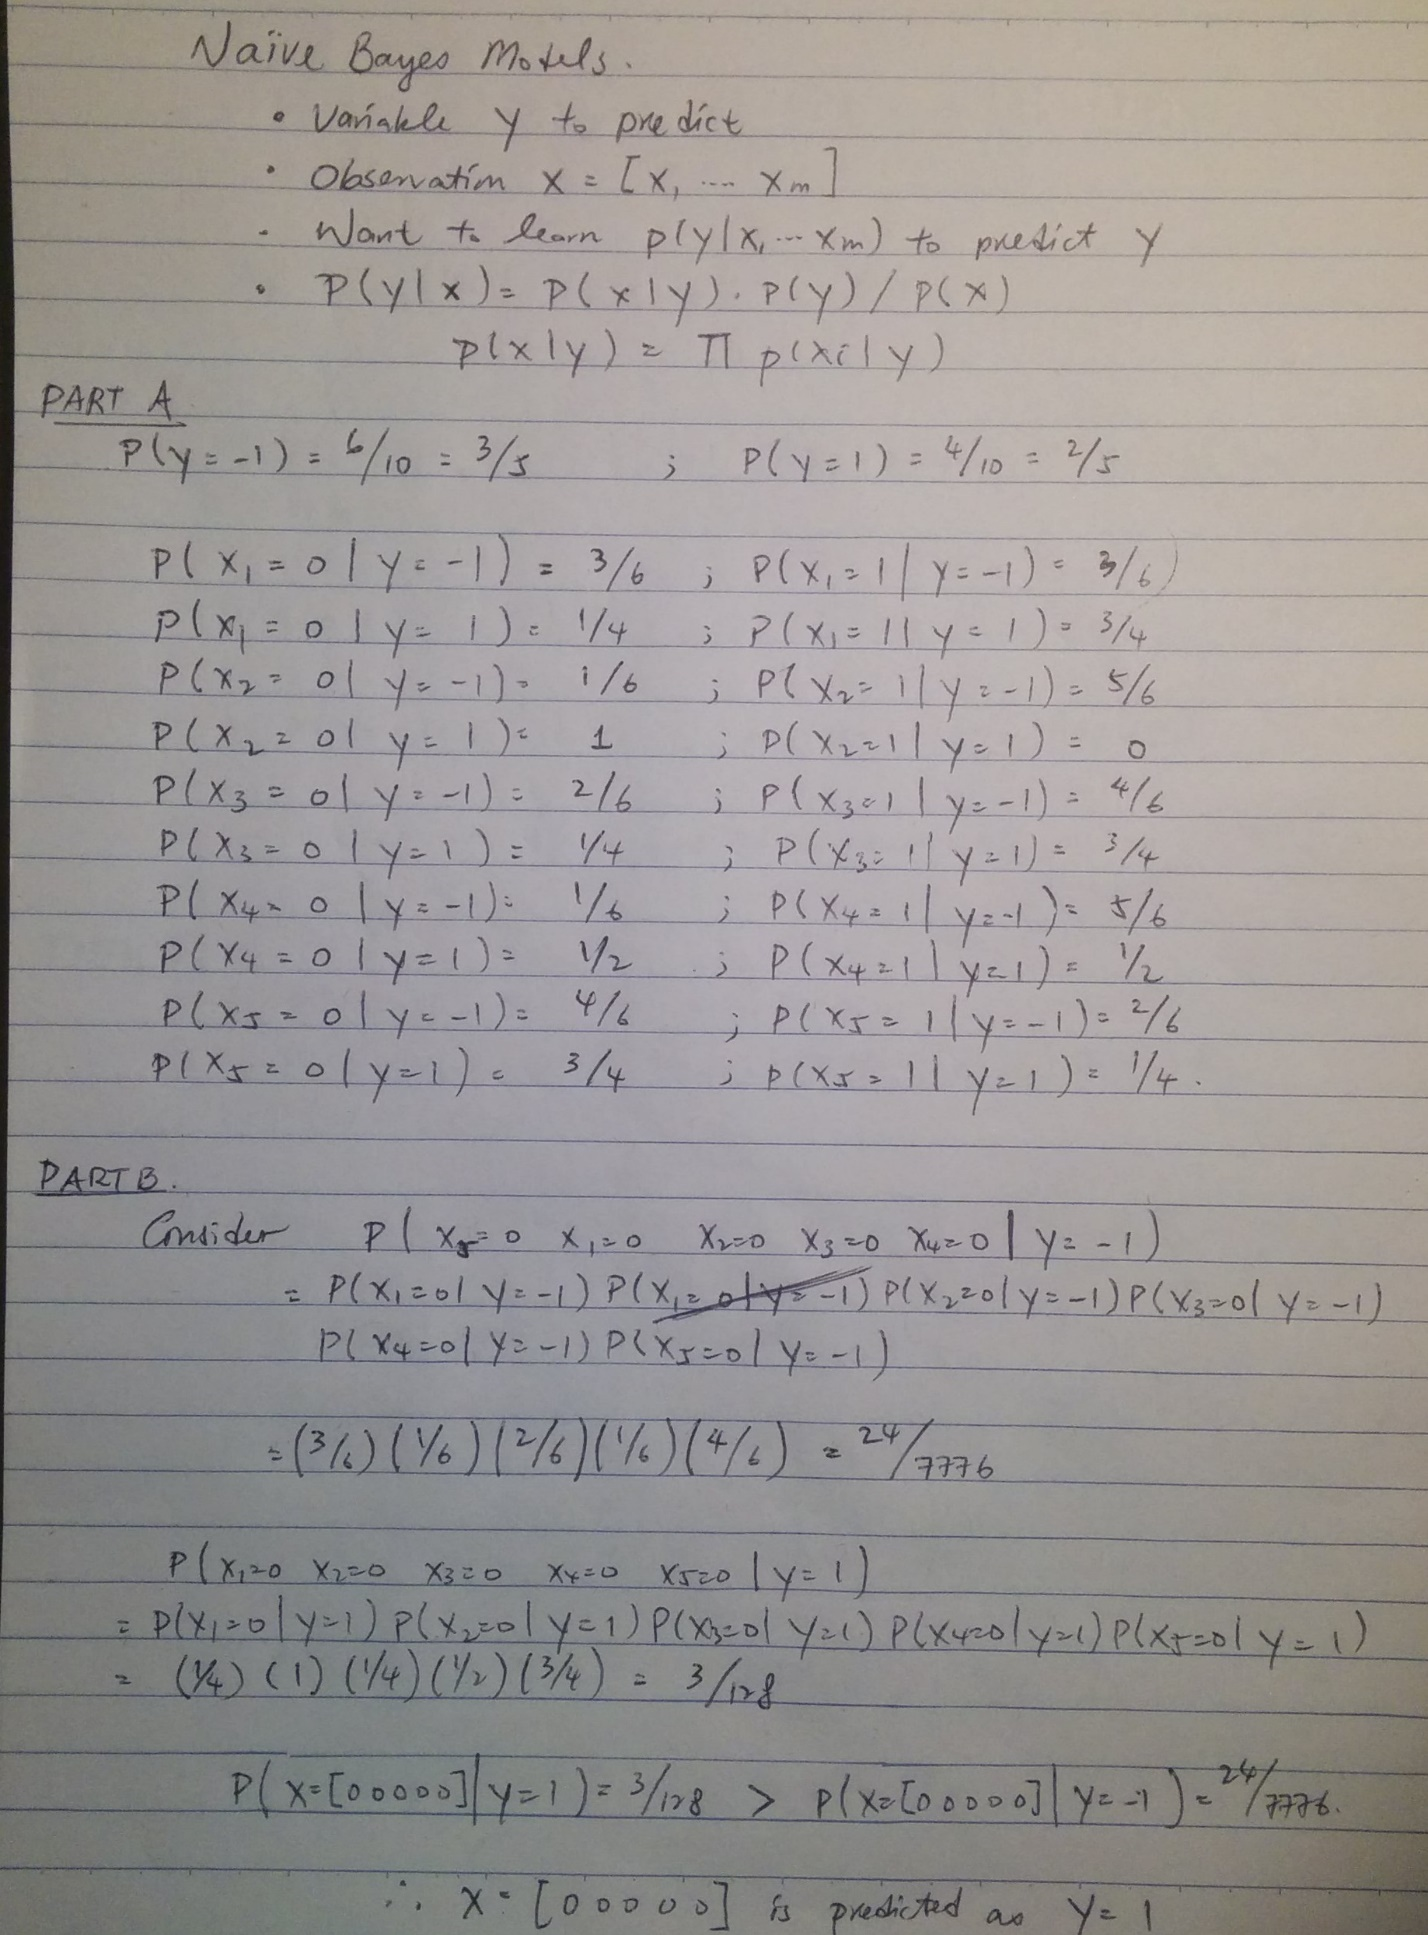 Naïve Bayes Models.
• Variable y to predict
• Observation x = [x₁ ... xm]
• Want to learn p(y|x₁ ... xm) to predict y
• P(y|x) = P(x|y). P(y) / P(x)
p(x|y) = Π p(xi|y)
PART A
P(y=-1) = 6/10 = 3/5 ; P(y=1) = 4/10 = 2/5
P(x₁=0|y=-1) = 3/6 ; P(x₁=1|y=-1) = 3/6)
P(x₁=0|y=1) = 1/4 ; P(x₁=1|y=1) = 3/4
P(x₂=0|y=-1) = 1/6 ; P(x₂=1|y=-1) = 5/6
P(x₂=0|y=1) = 1 ; P(x₂=1|y=1) = 0
P(x₃=0|y=-1) = 2/6 ; P(x₃=1|y=-1) = 4/6
P(x₃=0|y=1) = 1/4 ; P(x₃=1|y=1) = 3/4
P(x₄=0|y=-1) = 1/6 ; P(x₄=1|y=-1) = 5/6
P(x₄=0|y=1) = 1/2 ; P(x₄=1|y=1) = 1/2
P(x₅=0|y=-1) = 4/6 ; P(x₅=1|y=-1) = 2/6
P(x₅=0|y=1) = 3/4 ; P(x₅=1|y=1) = 1/4.
PART B.
Consider P(x₅=0 x₁=0 x₂=0 x₃=0 x₄=0|y=-1)
= P(x₁=0|y=-1) P(x₁=0|y=-1) P(x₂=0|y=-1) P(x₃=0|y=-1)
P(x₄=0|y=-1) P(x₅=0|y=-1)
= (3/6) (1/6) (2/6) (1/6) (4/6) = 24/7776
P(x₁=0 x₂=0 x₃=0 x₄=0 x₅=0|y=1)
= P(x₁=0|y=1) P(x₂=0|y=1) P(x₃=0|y=1) P(x₄=0|y=1) P(x₅=0|y=1)
= (1/4) (1) (1/4) (1/2) (3/4) = 3/128
P(x=[00000]|y=1) = 3/128 > P(x=[00000]|y=-1) = 24/7776.
∴ x=[00000] is predicted as y=1